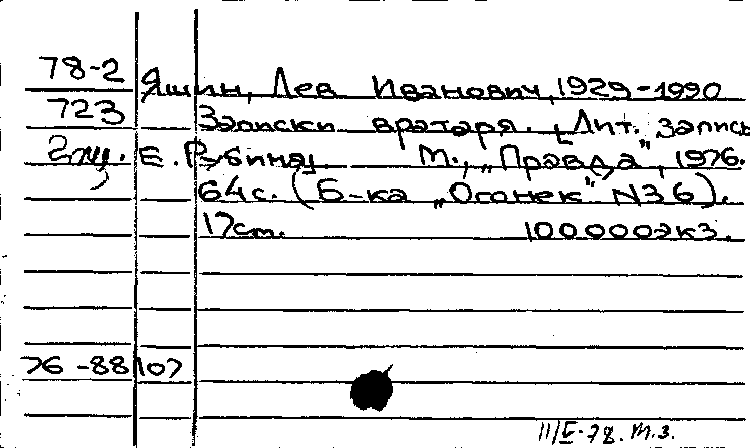 78-2 Яшин, Лев Иванович, 1929-1990
723 Записки вратаря. [Лит. запись
2эщ. Е. Рубина]. М., „Правда", 1976.
64с. (Б-ка „Огонек" N36).
17см. 100000экз.
76-88107
11/V-78. М.З.